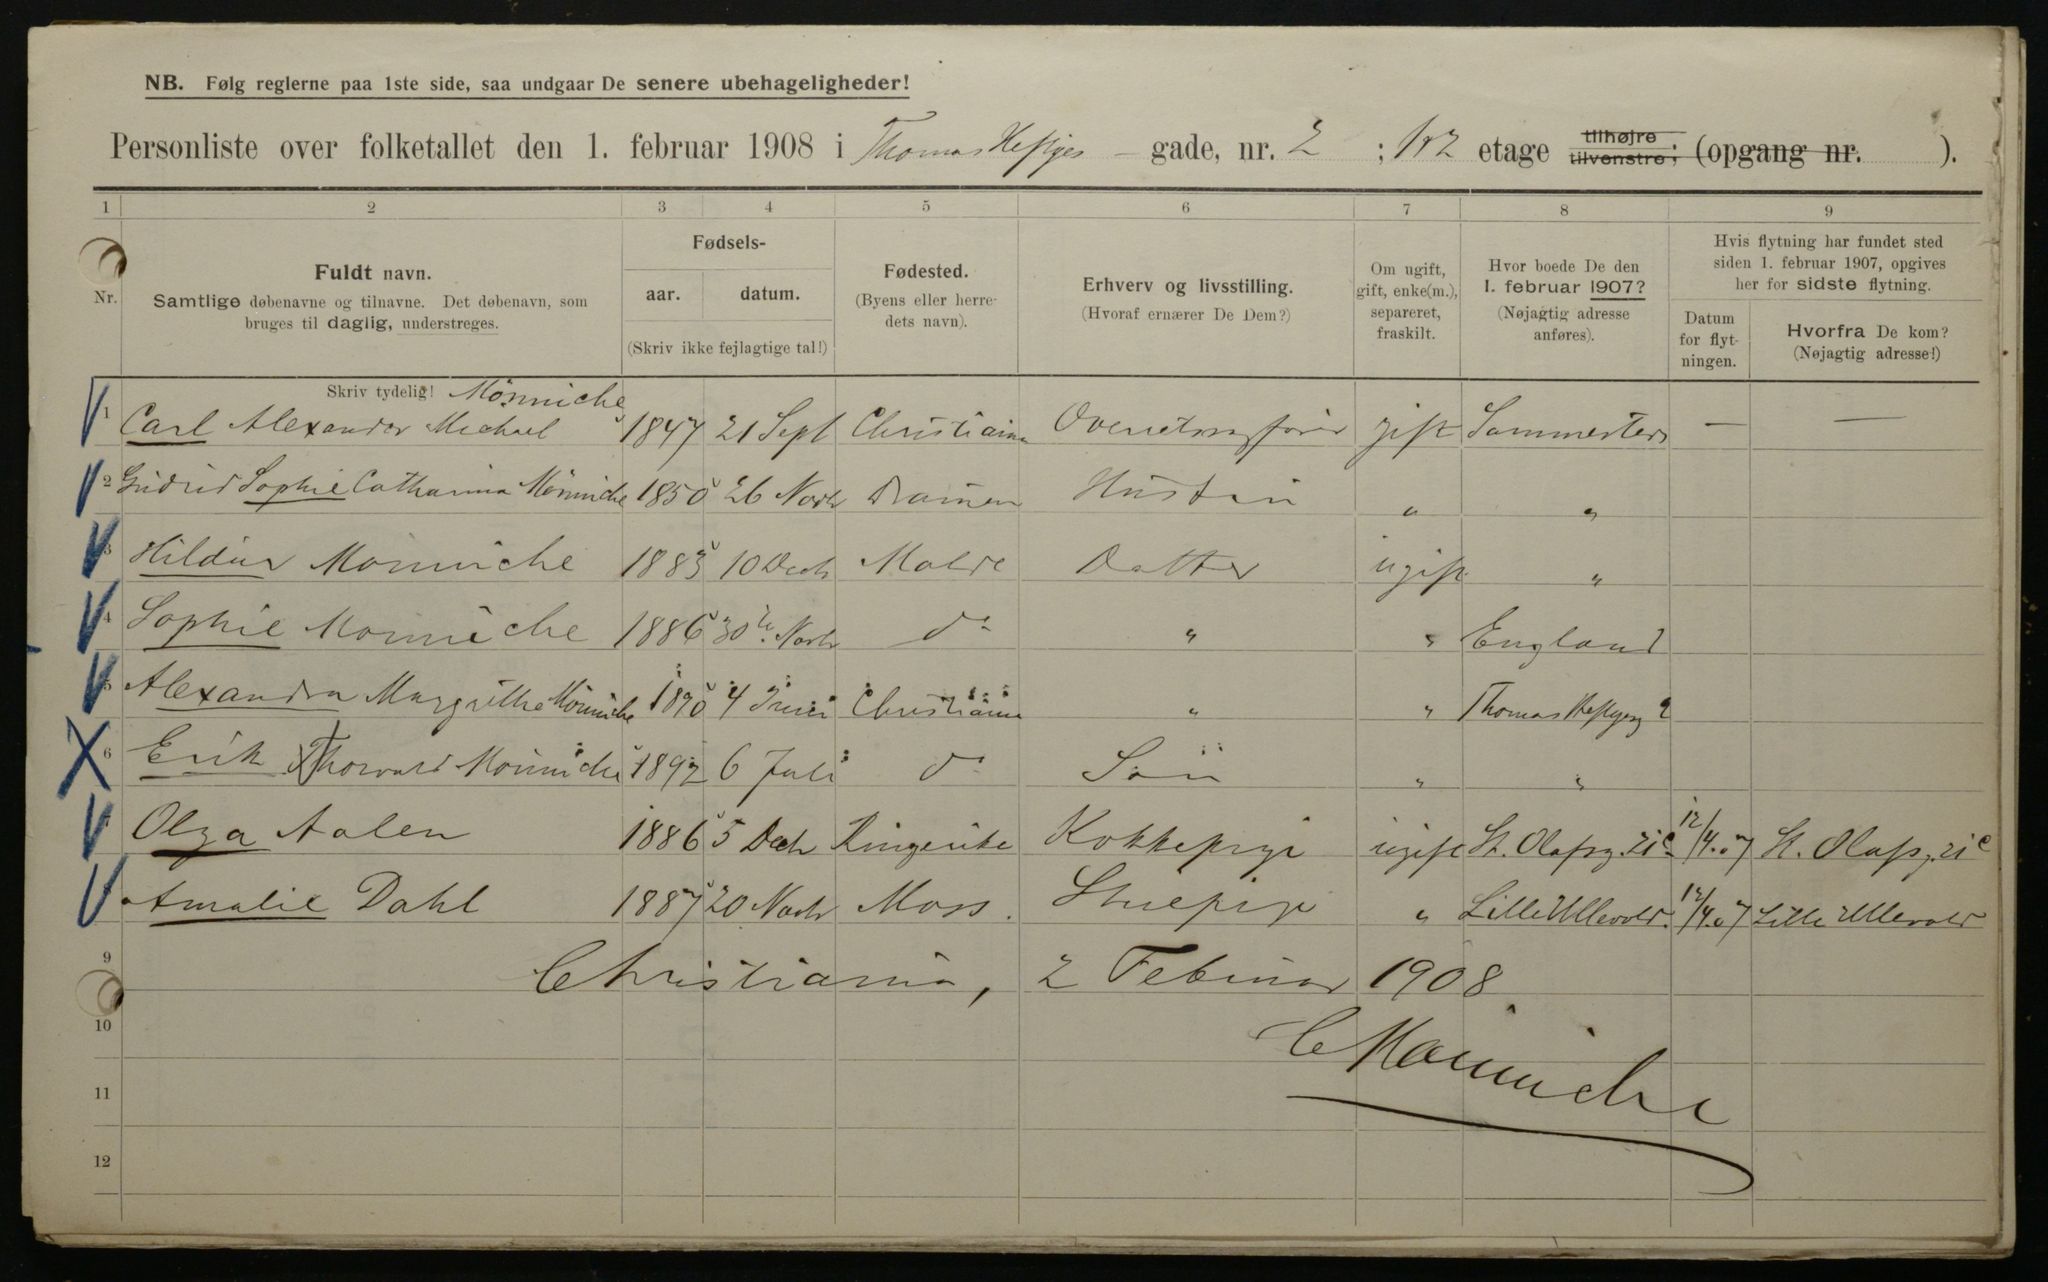 NB. Følg reglerne paa 1ste side, saa undgaar De senere ubehageligheder!
Personliste over folketallet den 1. februar 1908 i Thomas Heftyes gade, nr. 2 ; 1 & 2 etage tilhøjre tilvenstre; (opgang nr. ).
1 2 3 4 5 6 7 8 9
Nr.
Fuldt navn.
Samtlige døbenavne og tilnavne. Det døbenavn, som
bruges til daglig, understreges.
Fødsels-
aar. datum.
(Skriv ikke fejlagtige tal!)
Fødested.
(Byens eller herre-
dets navn).
Erhverv og livsstilling.
(Hvoraf ernærer De Dem?)
Om ugift,
gift, enke(m.),
separeret,
fraskilt.
Hvor boede De den
1. februar 1907?
(Nøjagtig adresse
anføres).
Hvis flytning har fundet sted
siden 1. februar 1907, opgives
her for sidste flytning.
Datum
for flyt-
ningen.
Hvorfra De kom?
(Nøjagtig adresse!)
Skriv tydelig! Mönniche
1 Carl Alexander Michael 1847 21 Sept Christiania Overretssagfører gift Sammesteds — —
2 Gudrid Sophie Catharina Mönniche 1850 26 Novbr Dramen Hustru " "
3 Hildur Mönniche 1883 10 Decbr Molde Datter ugift "
4 Sophie Mönniche 1886 30te Novbr do " " England
5 Alexandra Margrethe Mönniche 1890 4 Juni Christiania " " Thomas Heftyesg 2
6 Erik Thorvald Mönniche 1892 6 Juli do Sön " "
7 Olga Aalen 1886 5 Decbr Ringerike Kokkepige ugift St. Olafsg. 21c 12/4.07 St. Olafsg. 21c
8 Amalie Dahl 1887 20 Novbr Moss. Stuepige " Lille Ullevold. 12/4.07 Lille Ullevold
9 Christiania, 2 Februar 1908
10
C Mönniche
11
12